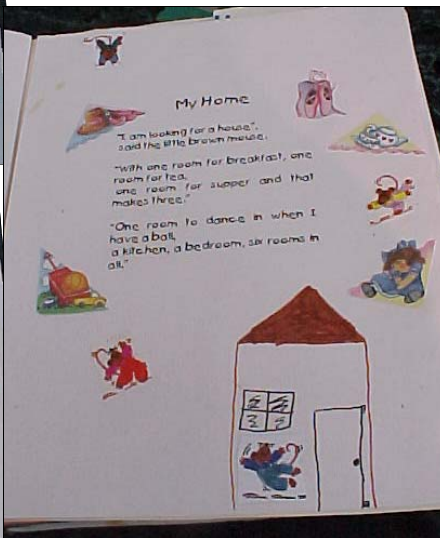 My Home
"I am looking for a house",
said the little brown mouse.
"With one room for breakfast, one
room for tea,
one room for supper and that
makes three."
"One room to dance in when I
have a ball,
a kitchen, a bedroom, six rooms in
all."